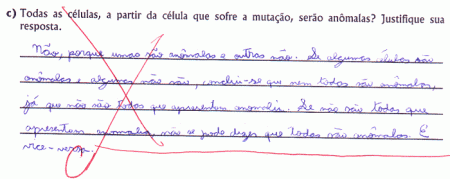 c) Todas as células, a partir da célula que sofre a mutação, serão anômalas? Justifique sua
resposta.
Não, porque umas são anômalas e outras não. Se algumas delas são
anômalas e algumas não são, conclui-se que nem todas são anômalas,
já que não são todas que apresentam anomalia. Se não são todas que
apresentam anomalia, não se pode dizer que todas são anômalas. E
vice-versa.